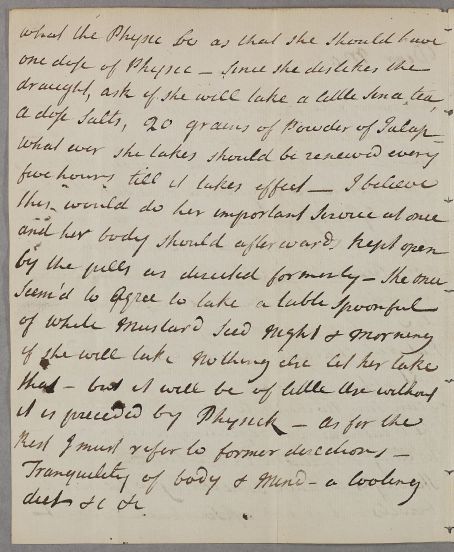 what the Physic be as that she should have
one dose of Physic – Since she dislikes the
draught, ask if she will take a little Sena tea,
a dose Salts, 20 grains of Powder of Jalap –
what ever she takes should be renewed every
five hours till it takes effect – I believe
this would do her important Service at once
and her body should afterwards kept open
by the pills as directed formerly – She once
Seem'd to agree to take a table Spoonful
of white Mustard Seed Night & Morning
if she will take Nothing else let her take
that – but it will be of little use without
it is preceded by Physick – as for the
Rest I must refer to former directions –
Tranquility of body & Mind – a Cooling
diet &c &c